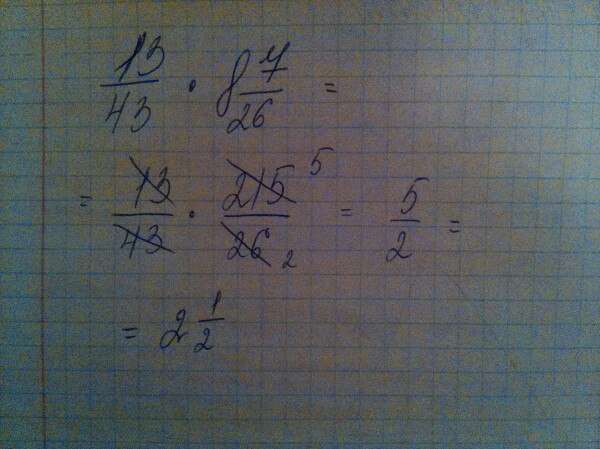 13/43 · 8 7/26 =
= 13/43 · 215/26 5 2 = 5/2 =
= 2 1/2